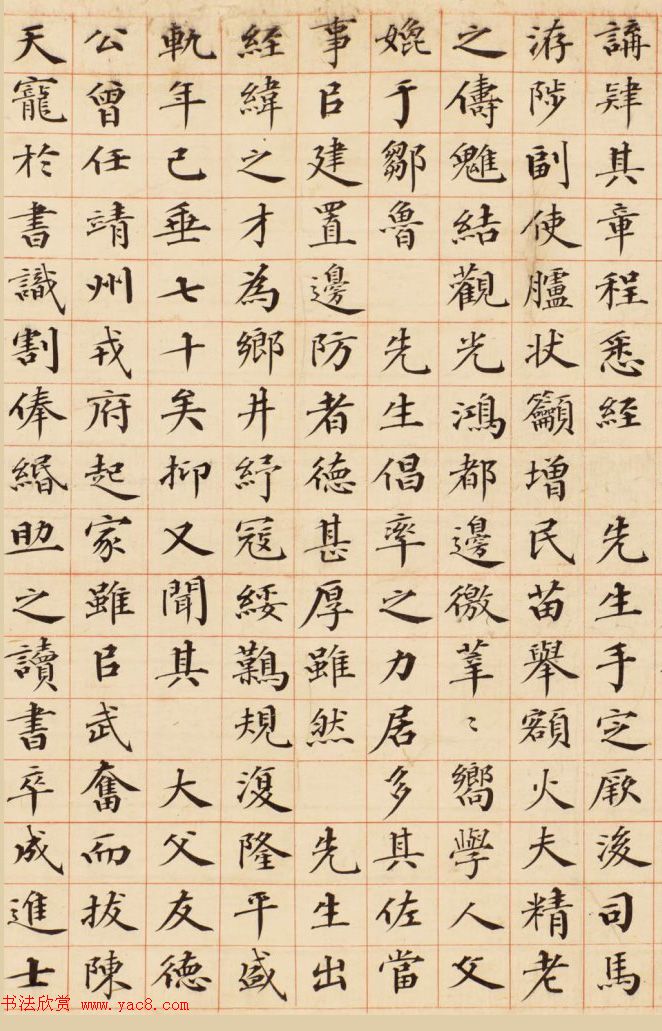 講肄其章程悉經　先生手定厥後司馬
洊陟副使臚状籲增民苗舉額火夫精老
之儔魋結觀光鴻都邊徼莘〻嚮學人文
媲于鄒魯　先生倡率之力居多其佐當
事㠯建置邊防者德甚厚雖然　先生出
經緯之才為鄉井紓寇綏鷄規復隆平盛
軌年已垂七十矣抑又聞其　大父友德
公曾任靖州戎府起家雖㠯武奮而拔陳
天寵於書識割俸緡助之讀書卒成進士
书法欣赏 www.yac8.com